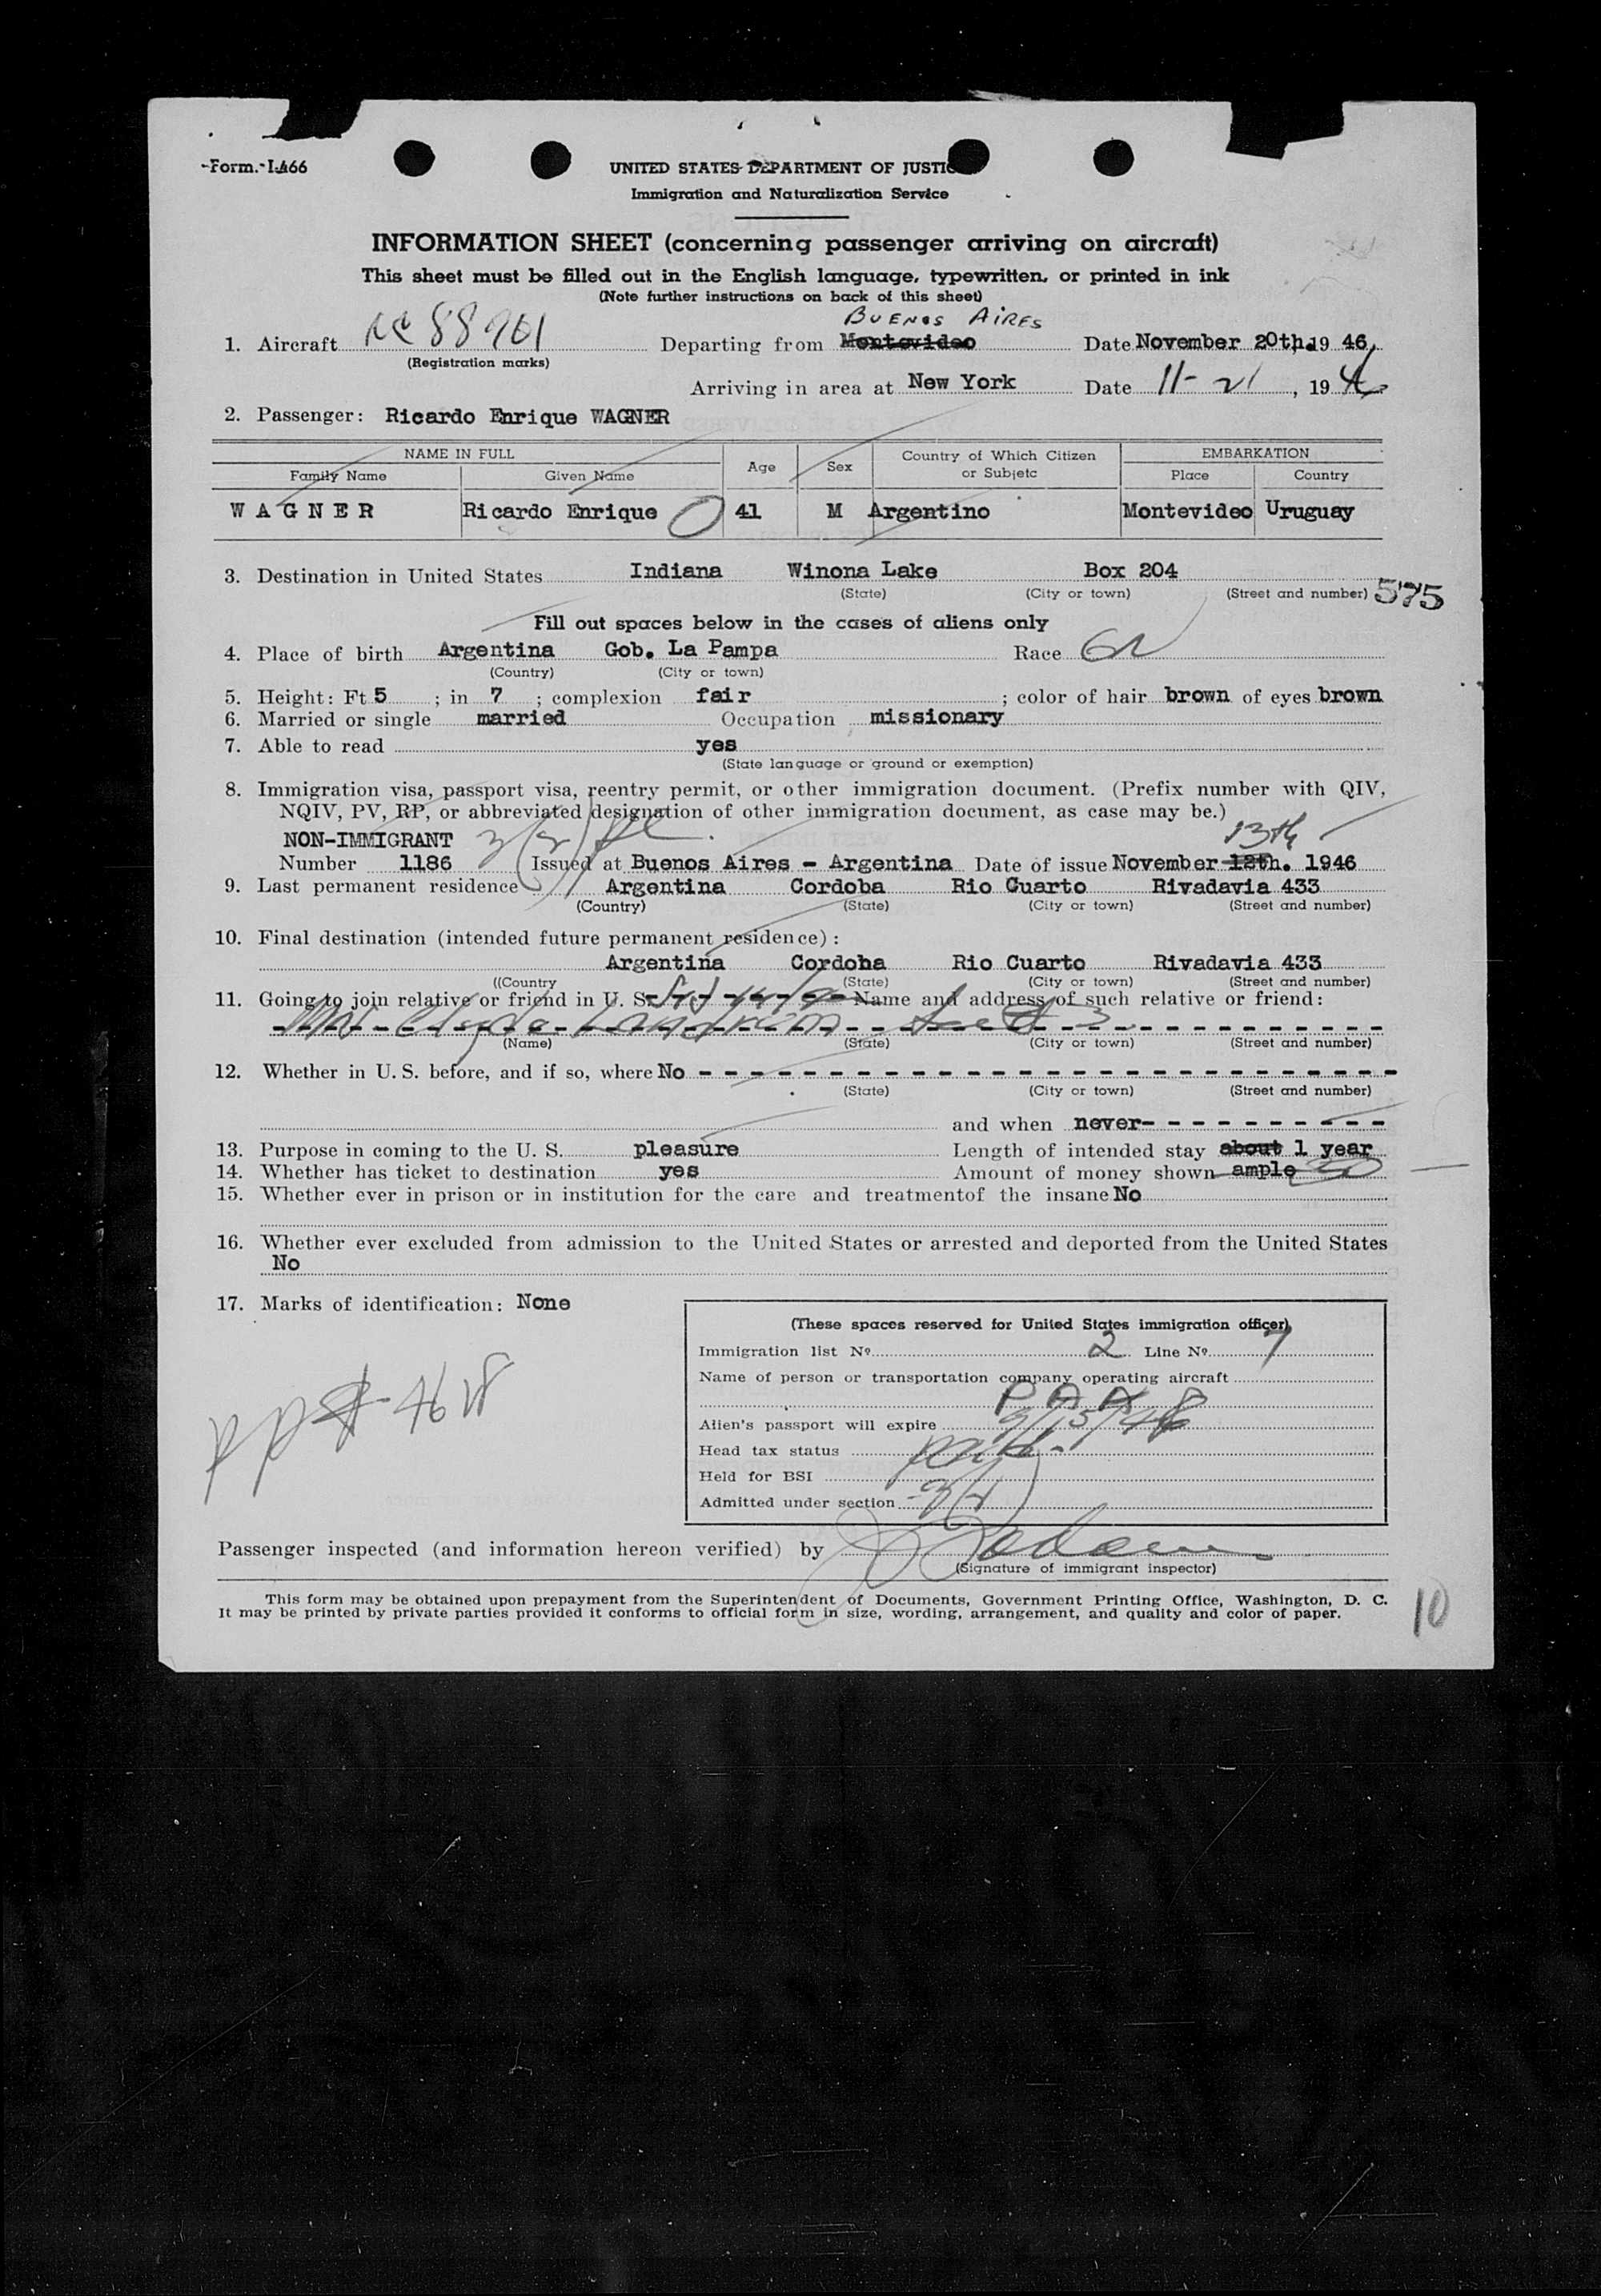 Form. I-466
UNITED STATES DEPARTMENT OF JUSTIC
Immigration and Naturalization Service
INFORMATION SHEET (concerning passenger arriving on aircraft)
This sheet must be filled out in the English language, typewritten, or printed in ink
(Note further instructions on back of this sheet)
BUENOS AIRES
1. Aircraft NC 88901 Departing from Montevideo Date November 20th. 19 46.
(Registration marks)
Arriving in area at New York Date 11-21, 19 46
2. Passenger: Ricardo Enrique WAGNER
NAME IN FULL Age Sex Country of Which Citizen or Subjetc EMBARKATION
Family Name Given Name Place Country
WAGNER Ricardo Enrique 41 M Argentino Montevideo Uruguay
3. Destination in United States Indiana Winona Lake Box 204
(State) (City or town) (Street and number) 575
Fill out spaces below in the cases of aliens only
4. Place of birth Argentina Gob. La Pampa Race
(Country) (City or town)
5. Height: Ft 5 ; in 7 ; complexion fair ; color of hair brown of eyes brown
6. Married or single married Occupation missionary
7. Able to read yes
(State language or ground or exemption)
8. Immigration visa, passport visa, reentry permit, or other immigration document. (Prefix number with QIV,
NQIV, PV, RP, or abbreviated designation of other immigration document, as case may be.)
NON-IMMIGRANT 3(2) 13th
Number 1186 Issued at Buenos Aires - Argentina Date of issue November 12th. 1946
9. Last permanent residence Argentina Cordoba Rio Cuarto Rivadavia 433
(Country) (State) (City or town) (Street and number)
10. Final destination (intended future permanent residence):
Argentina Cordoba Rio Cuarto Rivadavia 433
((Country (State) (City or town) (Street and number)
11. Going to join relative or friend in U. S. Name and address of such relative or friend:
Clyde Landrum See # 3
(Name) (State) (City or town) (Street and number)
12. Whether in U. S. before, and if so, where No
(State) (City or town) (Street and number)
and when never
13. Purpose in coming to the U. S. pleasure Length of intended stay about 1 year
14. Whether has ticket to destination yes Amount of money shown ample 50
15. Whether ever in prison or in institution for the care and treatmentof the insane No
16. Whether ever excluded from admission to the United States or arrested and deported from the United States
No
17. Marks of identification: None
(These spaces reserved for United States immigration officer)
Immigration list Nº 2 Line Nº 7
Name of person or transportation company operating aircraft
P A A
Alien's passport will expire 9/15/48
Head tax status paid
Held for BSI
Admitted under section 3(2)
Passenger inspected (and information hereon verified) by
(Signature of immigrant inspector)
This form may be obtained upon prepayment from the Superintendent of Documents, Government Printing Office, Washington, D. C.
It may be printed by private parties provided it conforms to official form in size, wording, arrangement, and quality and color of paper.
10